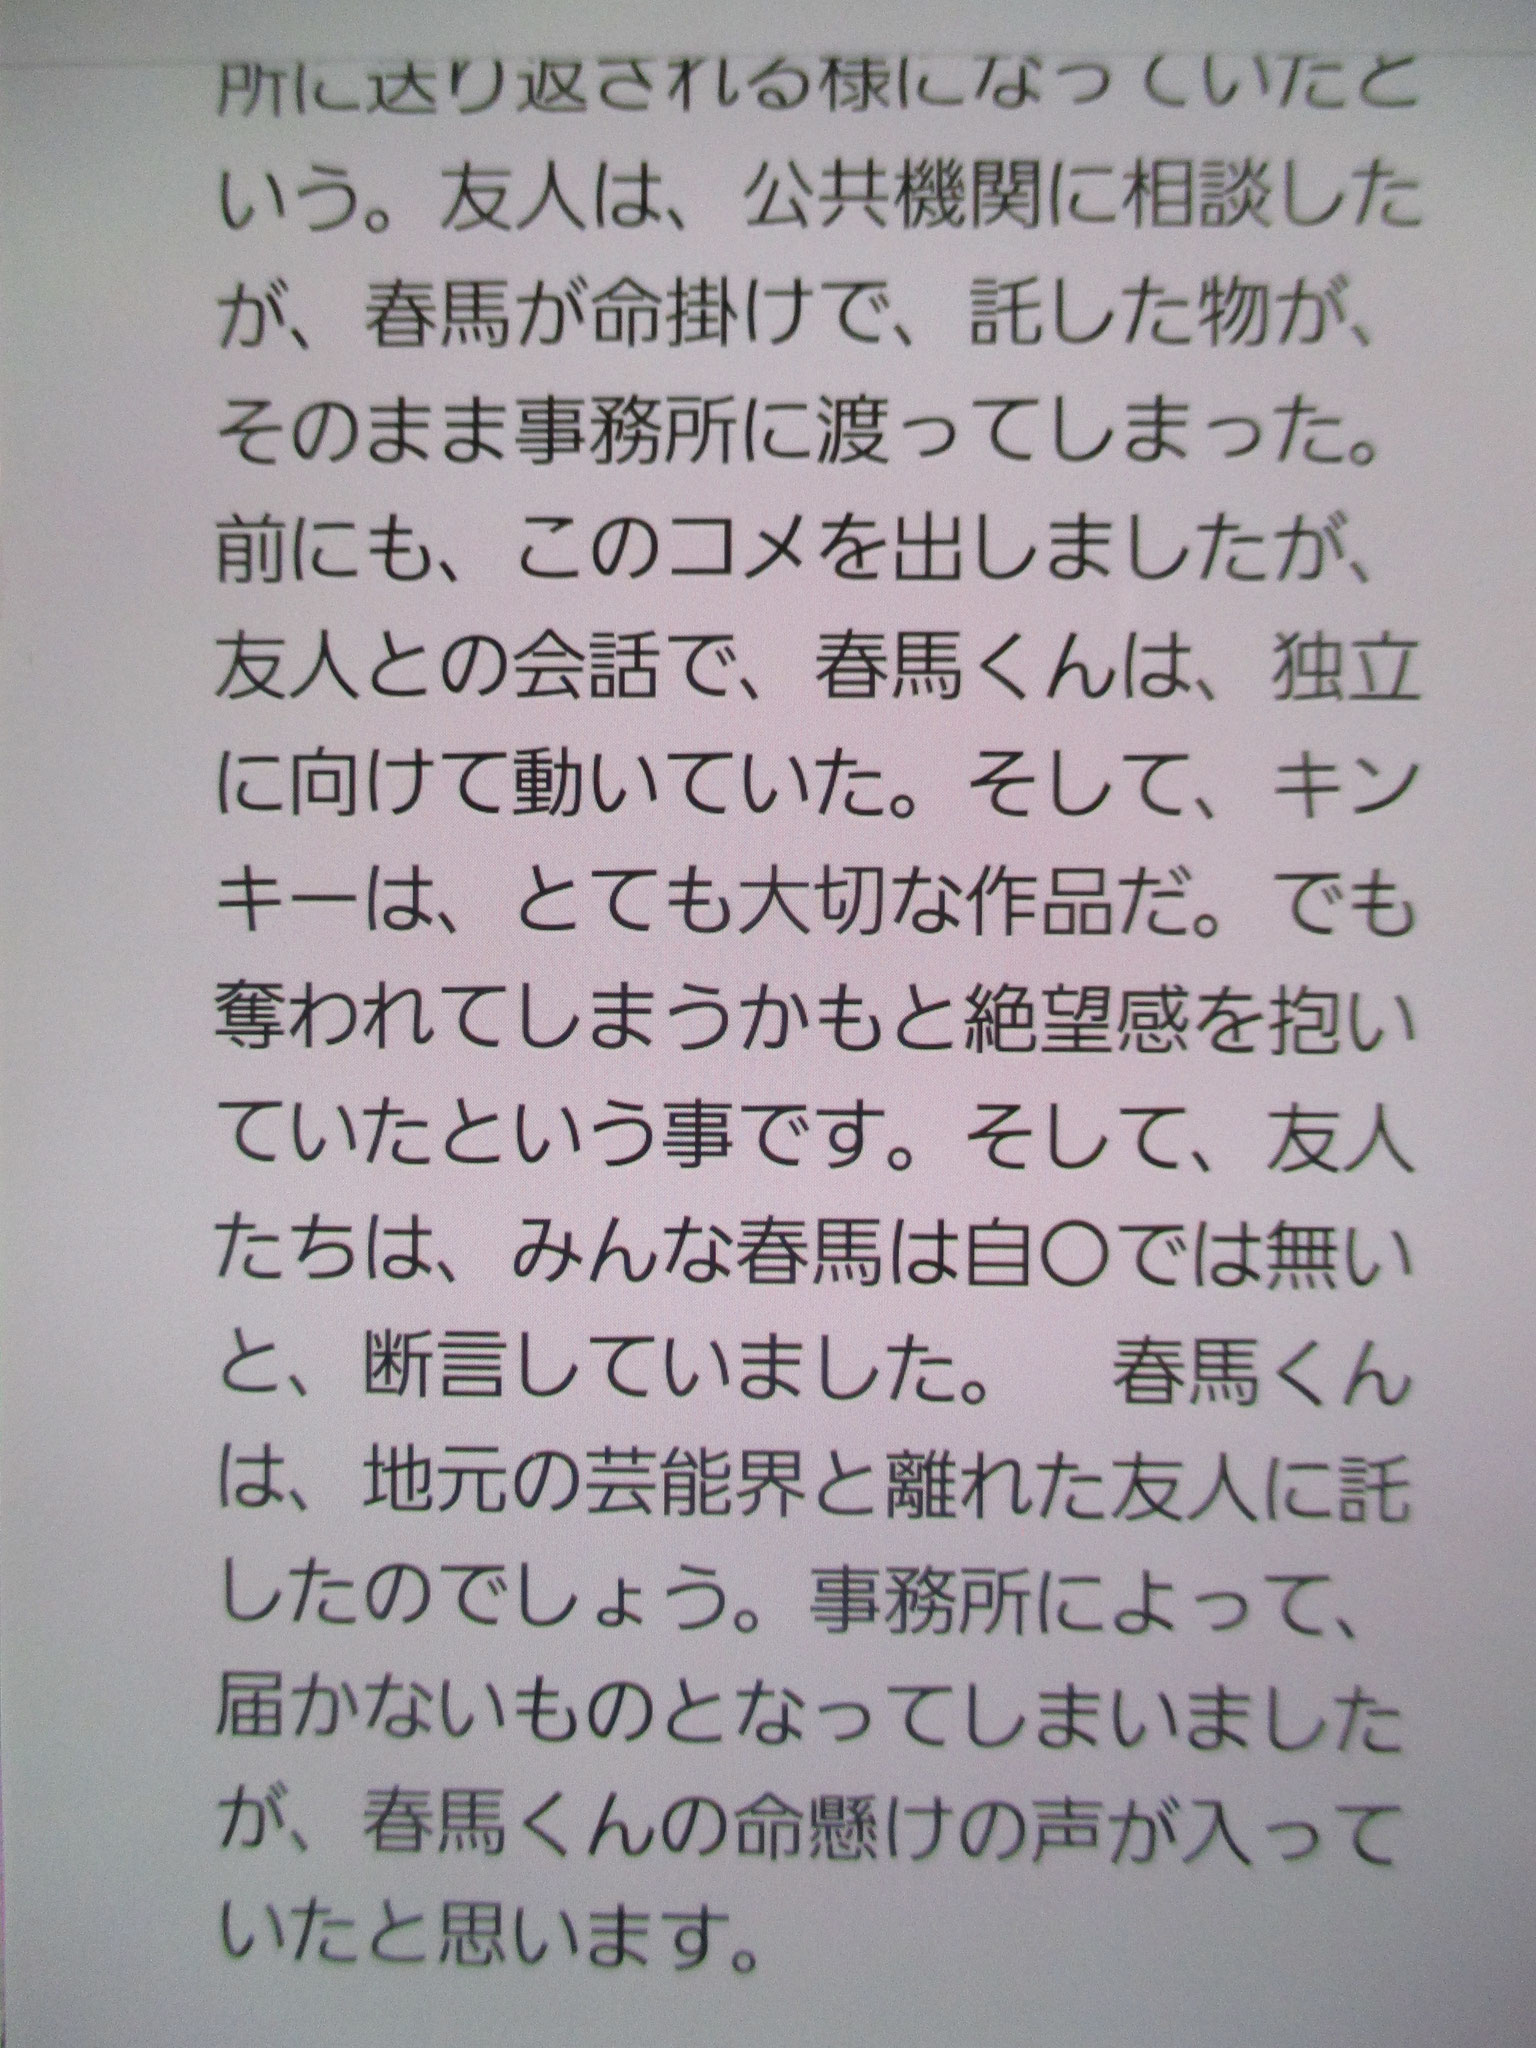 所に送り返される様になっていたと
いう。友人は、公共機関に相談した
が、春馬が命掛けで、託した物が、
そのまま事務所に渡ってしまった。
前にも、このコメを出しましたが、
友人との会話で、春馬くんは、独立
に向けて動いていた。そして、キン
キーは、とても大切な作品だ。でも
奪われてしまうかもと絶望感を抱い
ていたという事です。そして、友人
たちは、みんな春馬は自〇では無い
と、断言していました。　春馬くん
は、地元の芸能界と離れた友人に託
したのでしょう。事務所によって、
届かないものとなってしまいました
が、春馬くんの命懸けの声が入って
いたと思います。